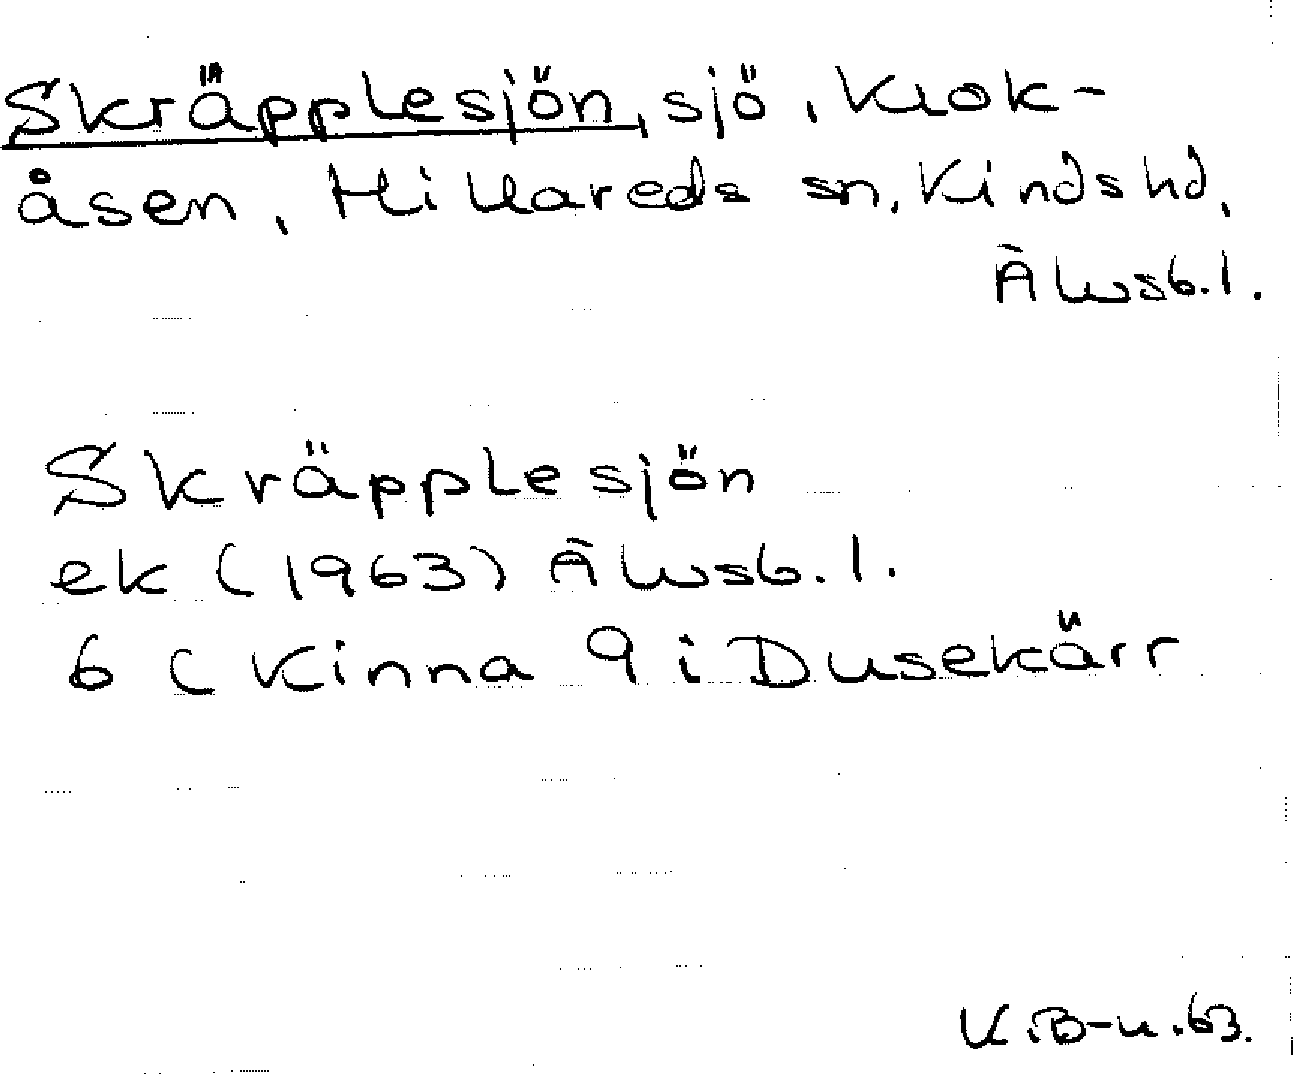 Skräpplesjön, sjö, Krok-
åsen, Hillareds sn, Kinds hd,
Älvsb. l.
Skräpplesjön
ek (1963) Älvsb. l.
6 ( Kinna 9 i Dusekärr
K.B-n.63.